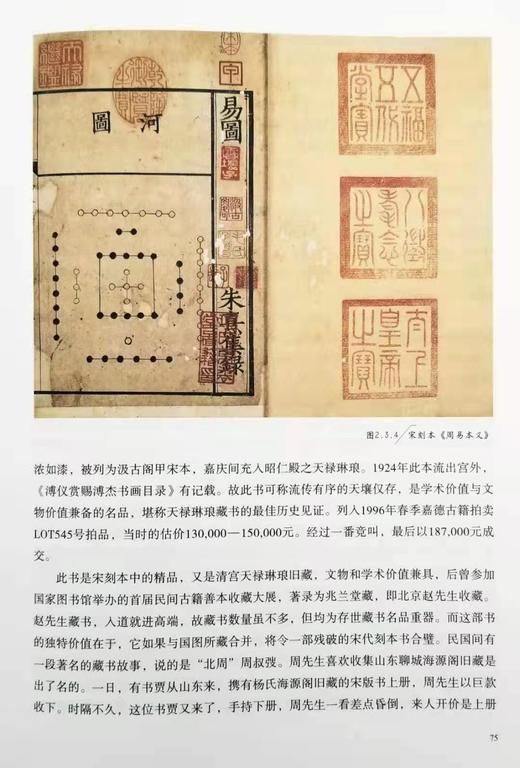 易圖
河圖
朱真隺錄
五福五代堂寶
八徵耄念之寶
太上皇帝之寶
图2.3.4 宋刻本《周易本义》
浓如漆，被列为汲古阁甲宋本，嘉庆间充入昭仁殿之天禄琳琅。1924年此本流出宫外，
《溥仪赏赐溥杰书画目录》有记载。故此书可称流传有序的天壤仅存，是学术价值与文
物价值兼备的名品，堪称天禄琳琅藏书的最佳历史见证。列入1996年春季嘉德古籍拍卖
LOT545号拍品，当时的估价130,000—150,000元。经过一番竞叫，最后以187,000元成
交。
此书是宋刻本中的精品，又是清宫天禄琳琅旧藏，文物和学术价值兼具，后曾参加
国家图书馆举办的首届民间古籍善本收藏大展，著录为兆兰堂藏，即北京赵先生收藏。
赵先生藏书，入道就进高端，故藏书数量虽不多，但均为存世藏书名品重器。而这部书
的独特价值在于，它如果与国图所藏合并，将令一部残破的宋代刻本书合璧。民国间有
一段著名的藏书故事，说的是“北周”周叔弢。周先生喜欢收集山东聊城海源阁旧藏是
出了名的。一日，有书贾从山东来，携有杨氏海源阁旧藏的宋版书上册，周先生以巨款
收下。时隔不久，这位书贾又来了，手持下册，周先生一看差点昏倒，来人开价是上册
75